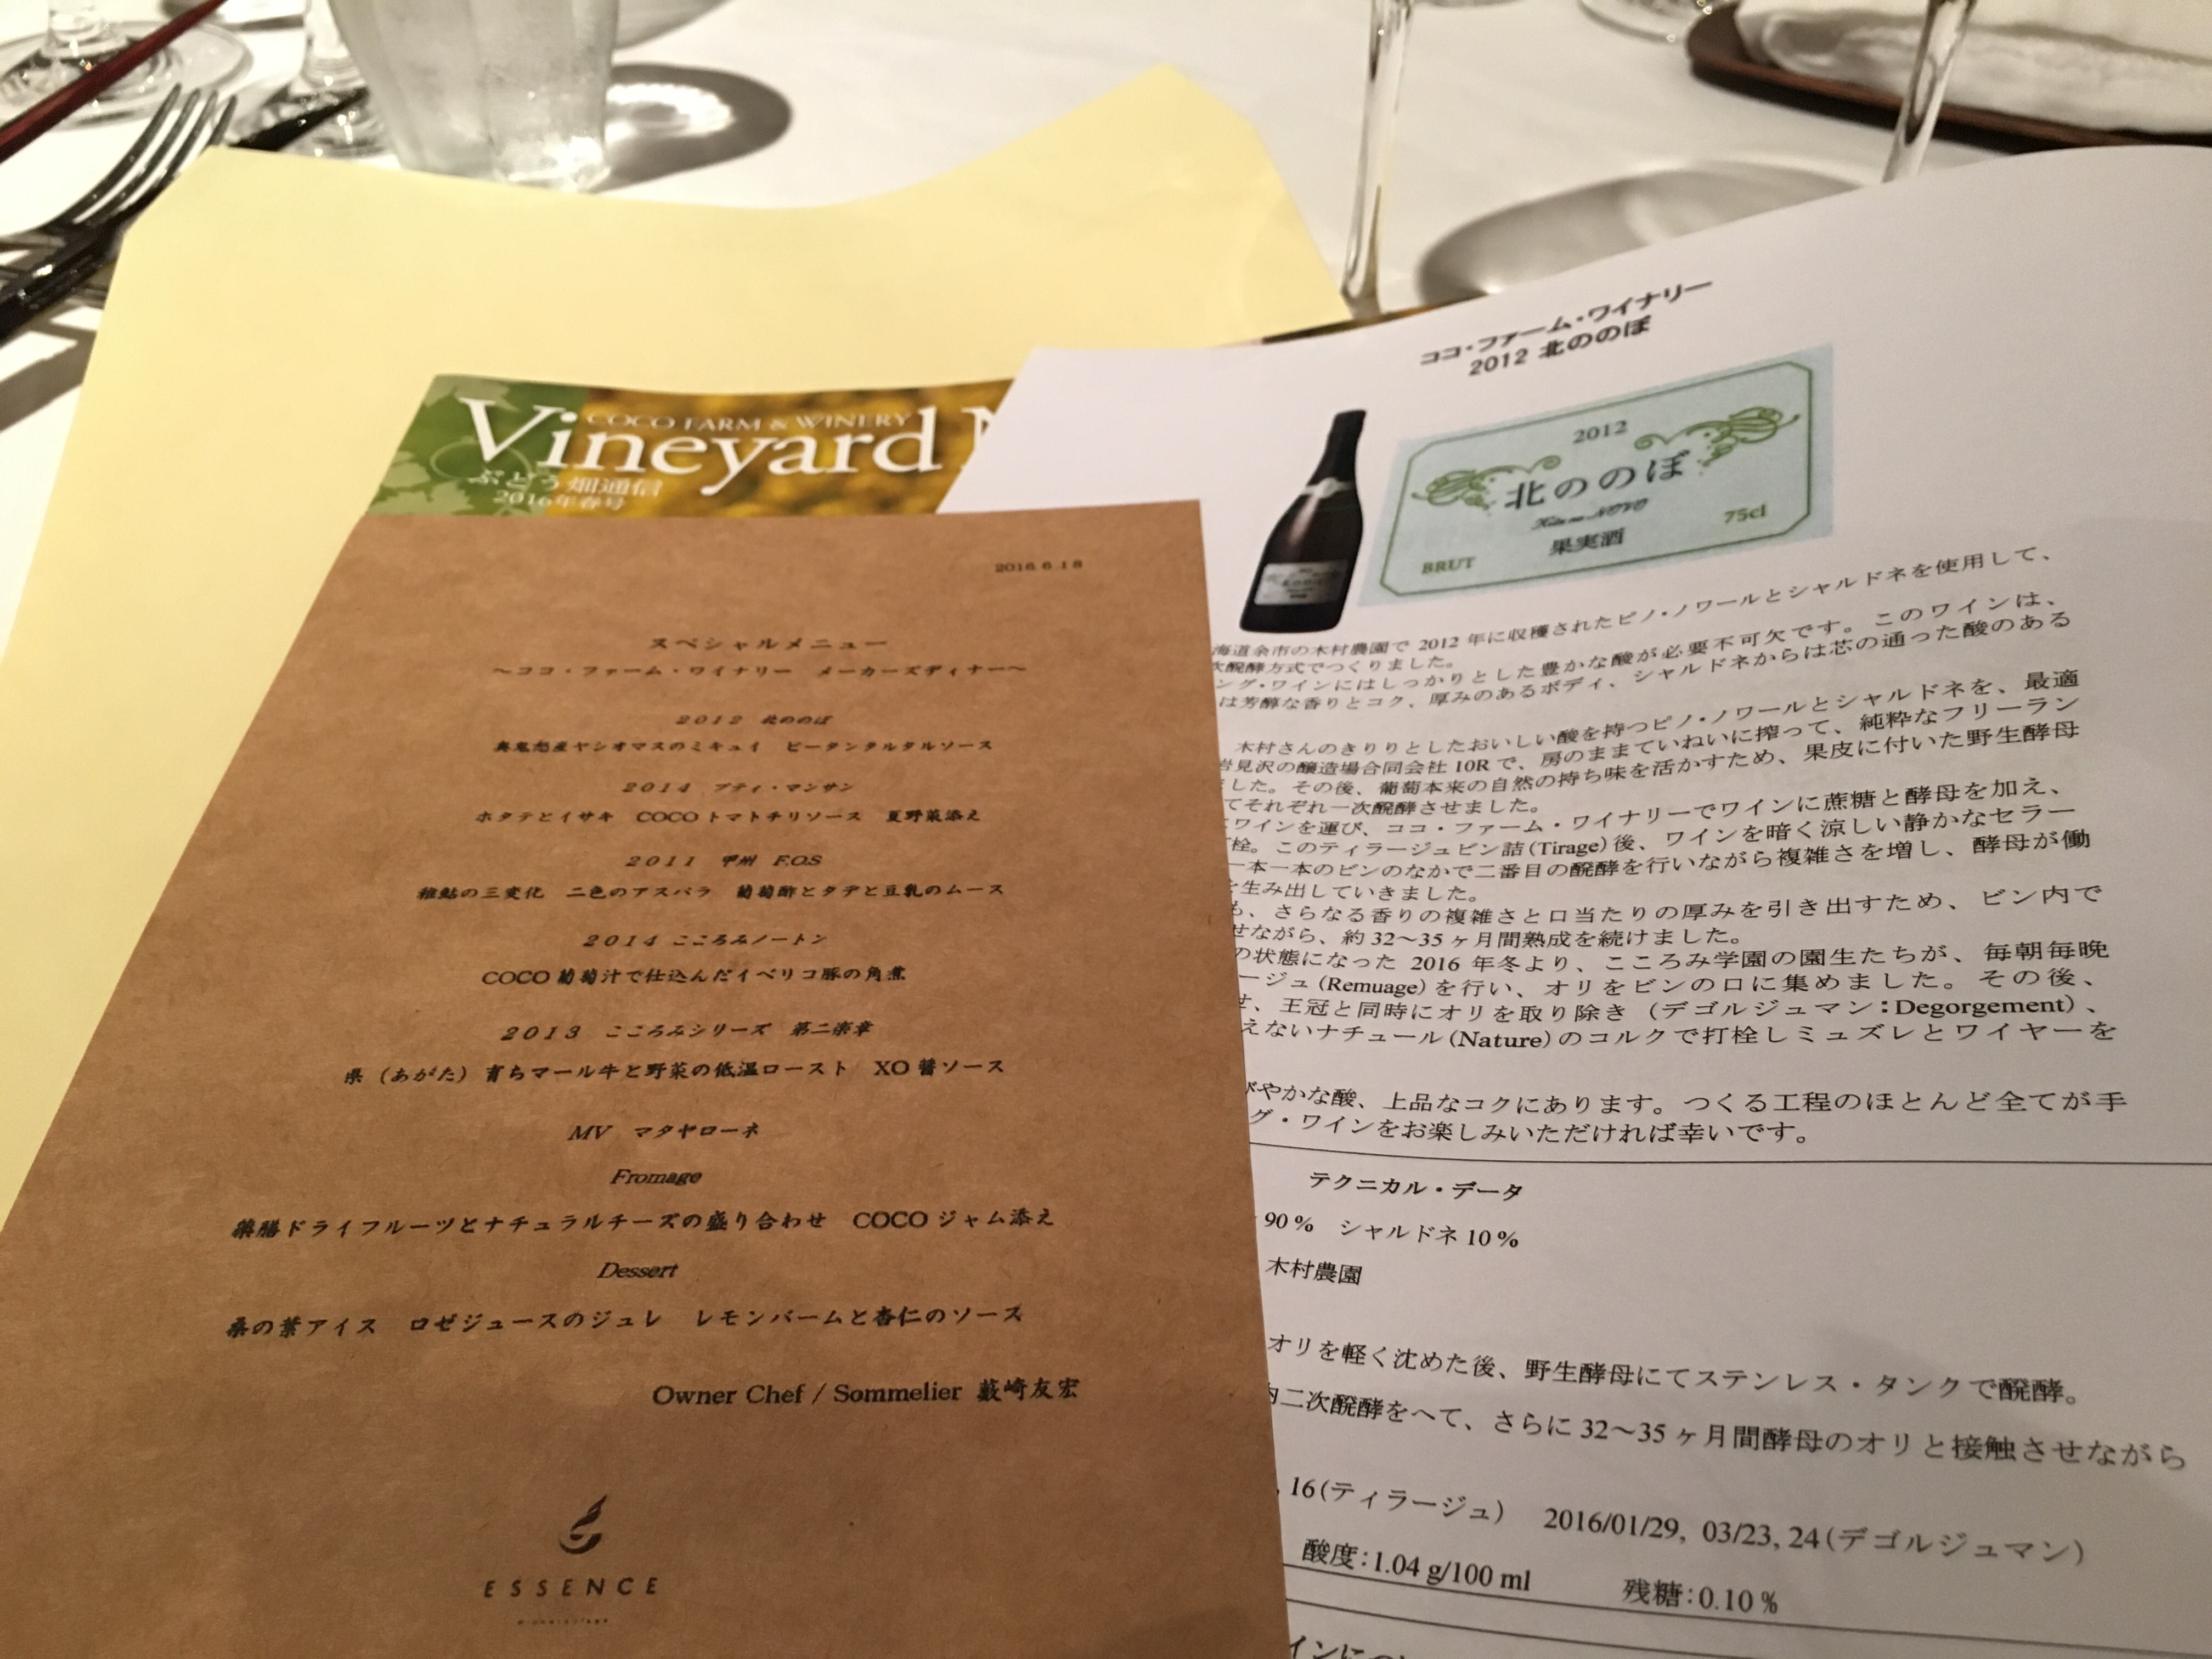 COCO FARM & WINERY
Vineyard
ぶどう畑通信
2016年春号
2016.6.18
スペシャルメニュー
～ココ・ファーム・ワイナリー メーカーズディナー～
2012 北ののぼ
奥鬼怒産ヤシオマスのミキュイ ピータンタルタルソース
2014 プティ・マンサン
ホタテとイサキ COCOトマトチリソース 夏野菜添え
2011 甲州 F.O.S
稚鮎の三変化 二色のアスパラ 葡萄酢とタデと豆乳のムース
2014 こころみノートン
COCO葡萄汁で仕込んだイベリコ豚の角煮
2013 こころみシリーズ 第二楽章
県（あがた）育ちマール牛と野菜の低温ロースト XO醤ソース
MV マタヤローネ
Fromage
薬膳ドライフルーツとナチュラルチーズの盛り合わせ COCOジャム添え
Dessert
桑の葉アイス ロゼジュースのジュレ レモンバームと杏仁のソース
Owner Chef / Sommelier 薮崎友宏
ESSENCE
ココ・ファーム・ワイナリー
2012 北ののぼ
2012
北ののぼ
Kita no NOVO
果実酒
BRUT
75cl
海道余市の木村農園で 2012 年に収穫されたピノ・ノワールとシャルドネを使用して、
次醗酵方式でつくりました。
ング・ワインにはしっかりとした豊かな酸が必要不可欠です。このワインは、
は芳醇な香りとコク、厚みのあるボディ、シャルドネからは芯の通った酸のある
木村さんのきりりとしたおいしい酸を持つピノ・ノワールとシャルドネを、最適
岩見沢の醸造場合同会社 10R で、房のままていねいに搾って、純粋なフリーラン
した。その後、葡萄本来の自然の持ち味を活かすため、果皮に付いた野生酵母
てそれぞれ一次醗酵させました。
ワインを運び、ココ・ファーム・ワイナリーでワインに蔗糖と酵母を加え、
栓。このティラージュビン詰(Tirage)後、ワインを暗く涼しい静かなセラー
一本一本のビンのなかで二番目の醗酵を行いながら複雑さを増し、酵母が働
を生み出していきました。
も、さらなる香りの複雑さと口当たりの厚みを引き出すため、ビン内で
せながら、約 32～35 ヶ月間熟成を続けました。
の状態になった 2016 年冬より、こころみ学園の園生たちが、毎朝毎晩
ージュ(Remuage)を行い、オリをビンの口に集めました。その後、
せ、王冠と同時にオリを取り除き（デゴルジュマン：Degorgement）、
えないナチュール(Nature)のコルクで打栓しミュズレとワイヤーを
びやかな酸、上品なコクにあります。つくる工程のほとんど全てが手
グ・ワインをお楽しみいただければ幸いです。
テクニカル・データ
90％ シャルドネ 10％
木村農園
オリを軽く沈めた後、野生酵母にてステンレス・タンクで醗酵。
内二次醗酵をへて、さらに 32～35 ヶ月間酵母のオリと接触させながら
, 16(ティラージュ) 2016/01/29, 03/23, 24(デゴルジュマン)
酸度：1.04 g/100 ml 残糖：0.10％